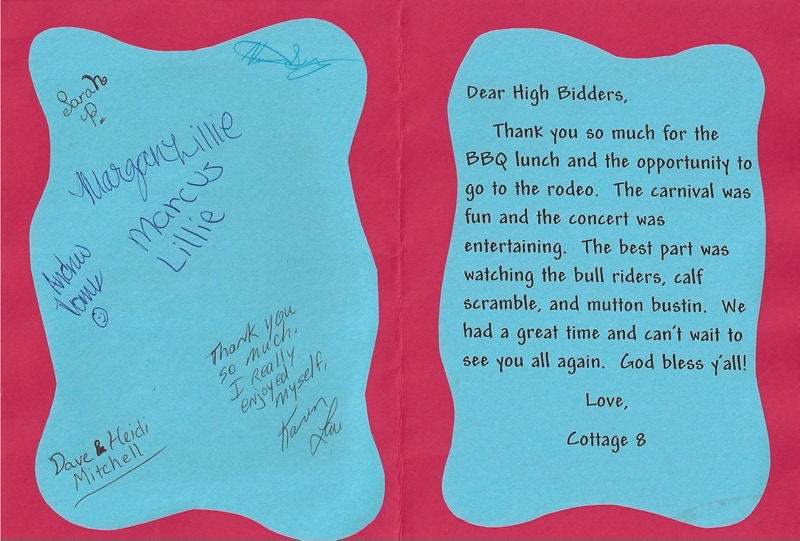 Sarah
P.
Margary Lillie
Marcus
Lillie
Andrew
Thank you
so much.
I really
enjoyed
myself,
Karen
Dave & Heidi
Mitchell
Dear High Bidders,
Thank you so much for the
BBQ lunch and the opportunity to
go to the rodeo. The carnival was
fun and the concert was
entertaining. The best part was
watching the bull riders, calf
scramble, and mutton bustin. We
had a great time and can't wait to
see you all again. God bless y'all!
Love,
Cottage 8